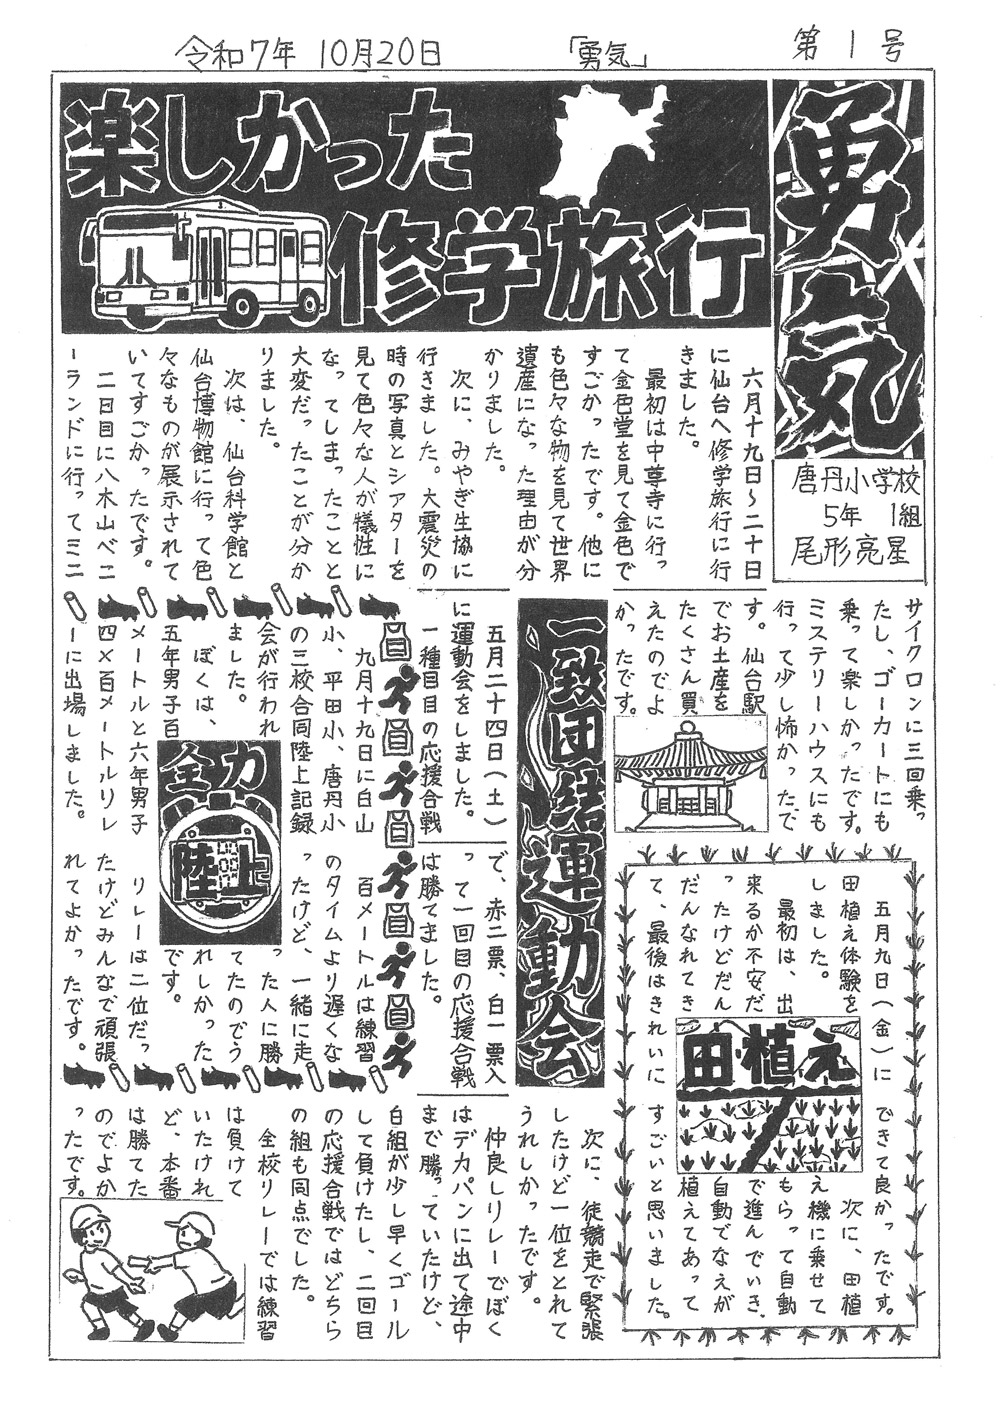 令和7年 10月20日 「勇気」 第1号
勇気
唐丹小学校
5年 1組
尾形亮星
楽しかった
修学旅行
六月十九日〜二十日
に仙台へ修学旅行に行
きました。
最初は中尊寺に行っ
て金色堂を見て金色で
すごかったです。他に
も色々な物を見て世界
遺産になった理由が分
かりました。
次に、みやぎ生協に
行きました。大震災の
時の写真とシアターを
見て色々な人が犠牲に
なってしまったことと
大変だったことが分か
りました。
次は、仙台科学館と
仙台博物館に行って色
々なものが展示されて
いてすごかったです。
二日目に八木山ベニ
ーランドに行ってミニ
サイクロンに三回乗っ
たし、ゴーカートにも
乗って楽しかったです。
ミステリーハウスにも
行って少し怖かったで
す。仙台駅
でお土産を
たくさん買
えたのでよ
かったです。
田植え
五月九日（金）に
田植え体験を
しました。
最初は、出
来るか不安だ
ったけどだん
だんなれてき
て、最後はきれいに
できて良かったです。
次に、田植
え機に乗せて
もらって自動
で進んでいき、
自動でなえが
植えてあって
すごいと思いました。
一致団結運動会
五月二十四日（土）
に運動会をしました。
一種目目の応援合戦
で、赤二票、白一票入
って一回目の応援合戦
は勝てました。
次に、徒競走で緊張
したけど一位をとれて
うれしかったです。
仲良しリレーでぼく
はデカパンに出て途中
まで勝っていたけど、
白組が少し早くゴール
して負けたし、二回目
の応援合戦ではどちら
の組も同点でした。
全校リレーでは練習
は負けて
いたけれ
ど、本番
は勝てた
のでよか
ったです。
全力
陸上
九月十九日に白山
小、平田小、唐丹小
の三校合同陸上記録
会が行われ
ました。
ぼくは、
五年男子百
メートルと六年男子
四×百メートルリレ
ーに出場しました。
百メートルは練習
のタイムより遅くな
ったけど、一緒に走
った人に勝
てたのでう
れしかった
です。
リレーは二位だっ
たけどみんなで頑張
れてよかったです。